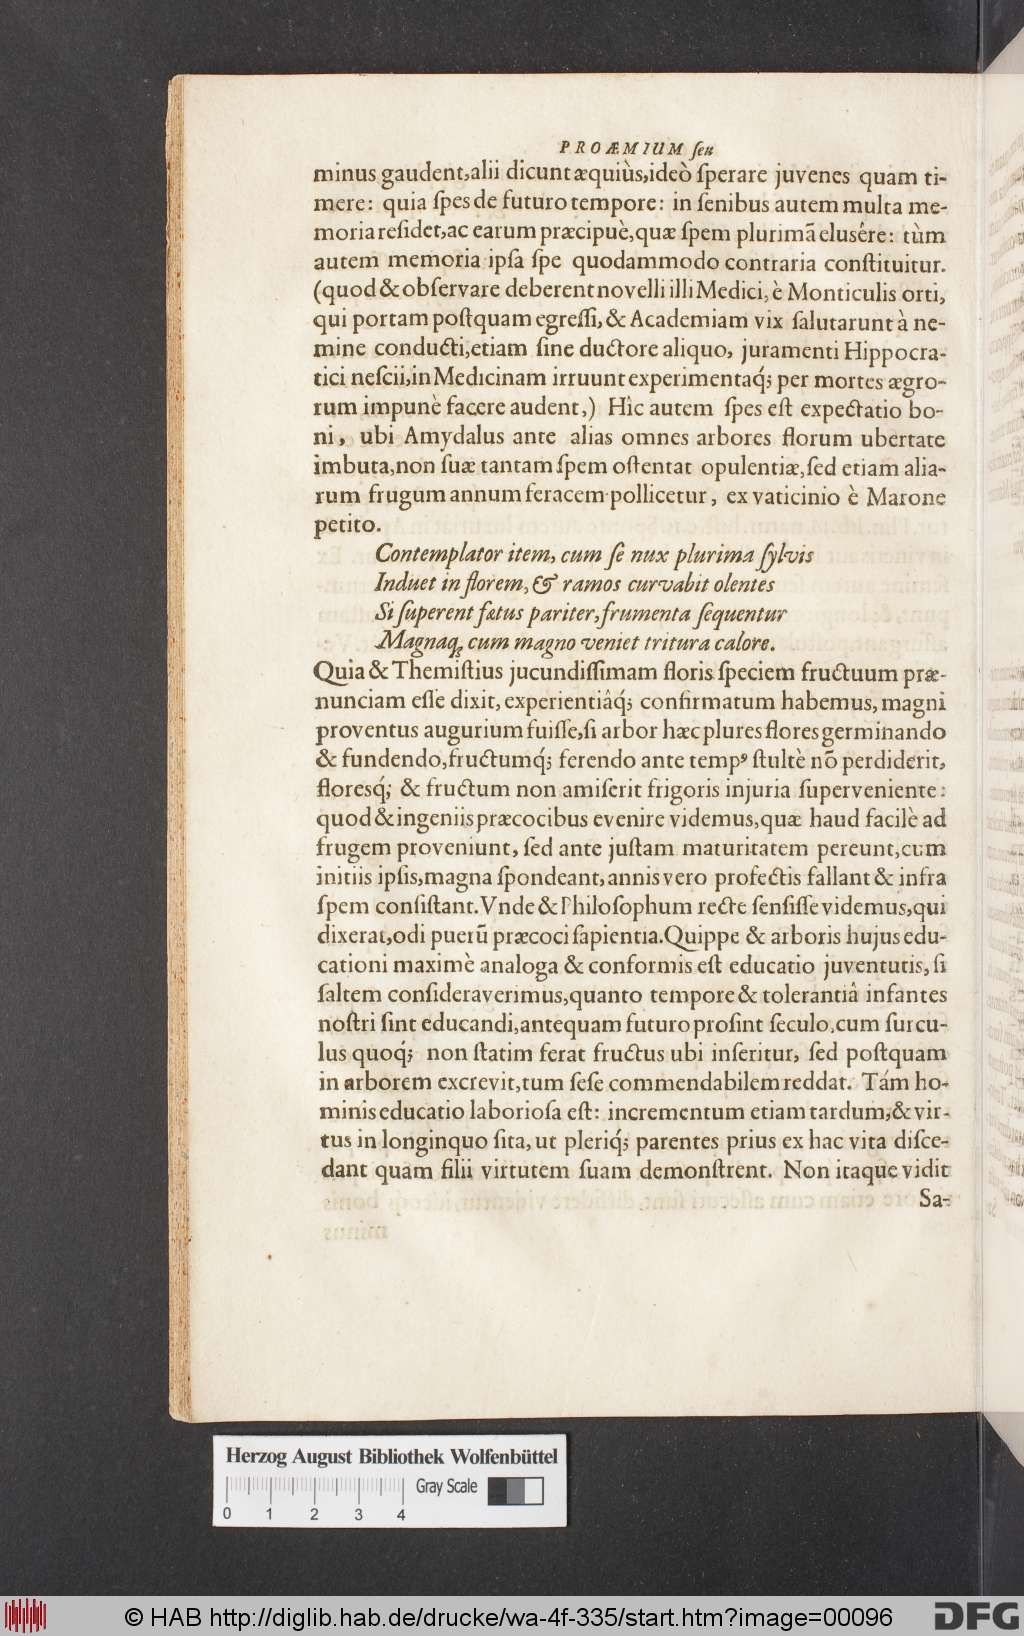 PROÆMIUM ſeu
minus gaudent,alii dicunt æquiùs,ideò ſperare juvenes quam ti-
mere: quia ſpes de futuro tempore: in ſenibus autem multa me-
moria reſidet,ac earum præcipuè,quæ ſpem plurimã eluſêre: tùm
autem memoria ipſa ſpe quodammodo contraria conſtituitur.
(quod & obſervare deberent novelli illi Medici, è Monticulis orti,
qui portam poſtquam egreſſi, & Academiam vix ſalutarunt à ne-
mine conducti,etiam ſine ductore aliquo, juramenti Hippocra-
tici neſcii,in Medicinam irruunt experimentaq́; per mortes ægro-
rum impunè facere audent,) Hìc autem ſpes eſt expectatio bo-
ni, ubi Amydalus ante alias omnes arbores florum ubertate
imbuta,non ſuæ tantam ſpem oſtentat opulentiæ, ſed etiam alia-
rum frugum annum feracem pollicetur, ex vaticinio è Marone
petito.
Contemplator item, cum ſe nux plurima ſylvis
Induet in florem, & ramos curvabit olentes
Si ſuperent fætus pariter, frumenta ſequentur
Magnaq; cum magno veniet tritura calore.
Quia & Themiſtius jucundiſſimam floris ſpeciem fructuum præ-
nunciam eſſe dixit, experientiâq́; confirmatum habemus, magni
proventus augurium fuiſſe, ſi arbor hæc plures flores germinando
& fundendo,fructumq́; ferendo ante tempꝰ ſtultè nõ perdiderit,
floresq́; & fructum non amiſerit frigoris injuria ſuperveniente:
quod & ingeniis præcocibus evenire videmus,quæ haud facilè ad
frugem proveniunt, ſed ante juſtam maturitatem pereunt,cum
initiis ipſis,magna ſpondeant, annis vero profectis fallant & infra
ſpem conſiſtant. Vnde & Philoſophum recte ſenſiſſe videmus,qui
dixerat,odi puerũ præcoci ſapientia. Quippe & arboris hujus edu-
cationi maximè analoga & conformis eſt educatio juventutis, ſi
ſaltem conſideraverimus,quanto tempore & tolerantiâ infantes
noſtri ſint educandi,antequam futuro proſint ſeculo,cum ſurcu-
lus quoq́; non ſtatim ferat fructus ubi inſeritur, ſed poſtquam
in arborem excrevit,tum ſeſe commendabilem reddat. Tám ho-
minis educatio laborioſa eſt: incrementum etiam tardum,& vir-
tus in longinquo ſita, ut pleriq́; parentes prius ex hac vita diſce-
dant quàm filii virtutem ſuam demonſtrent. Non itaque vidit
Sa-
Herzog August Bibliothek Wolfenbüttel
Gray Scale
0 1 2 3 4
© HAB http://diglib.hab.de/drucke/wa-4f-335/start.htm?image=00096
DFG